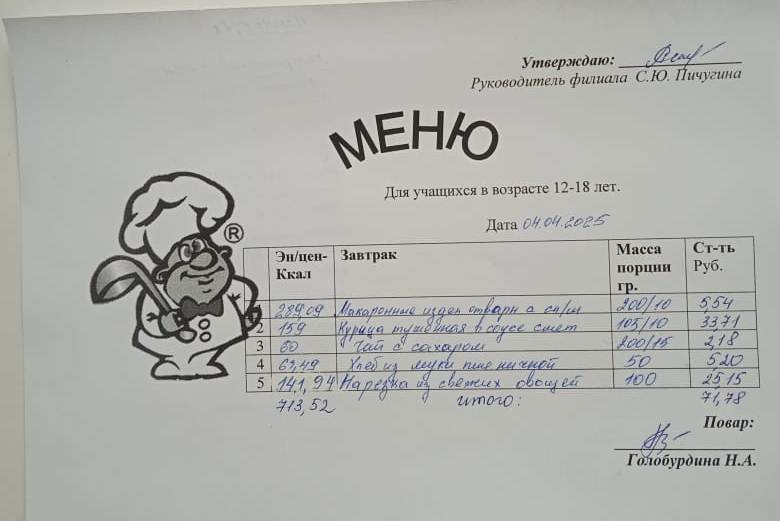 Утверждаю:
Руководитель филиала С.Ю. Пичугина
МЕНЮ
Для учащихся в возрасте 12-18 лет.
Дата 04.04.2025
®
Эн/цен-Ккал Завтрак Масса порции гр. Ст-ть Руб.
289,09 Макаронные издел отварн с сл/м 200/10 5,54
2 159 Курица тушенная в соусе смет 105/10 33,71
3 60 Чай с сахаром 200/15 2,18
4 63,49 Хлеб из муки пшеничной 50 5,20
5 141,94 Нарезка из свежих овощей 100 25,15
713,52 итого: 71,78
Повар:
Голобурдина Н.А.